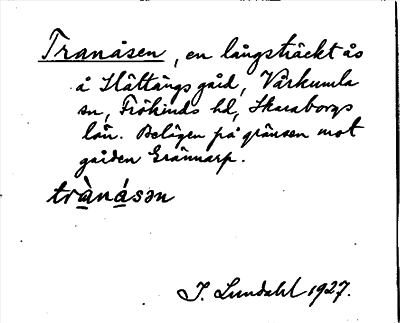 Tranåsen, en långsträckt ås
å Slättängs gård, Vårkumla
sn, Frökinds hd, Skaraborgs
län. Belägen på gränsen mot
gården Grännarp.
trànásən
I. Lundahl 1927.